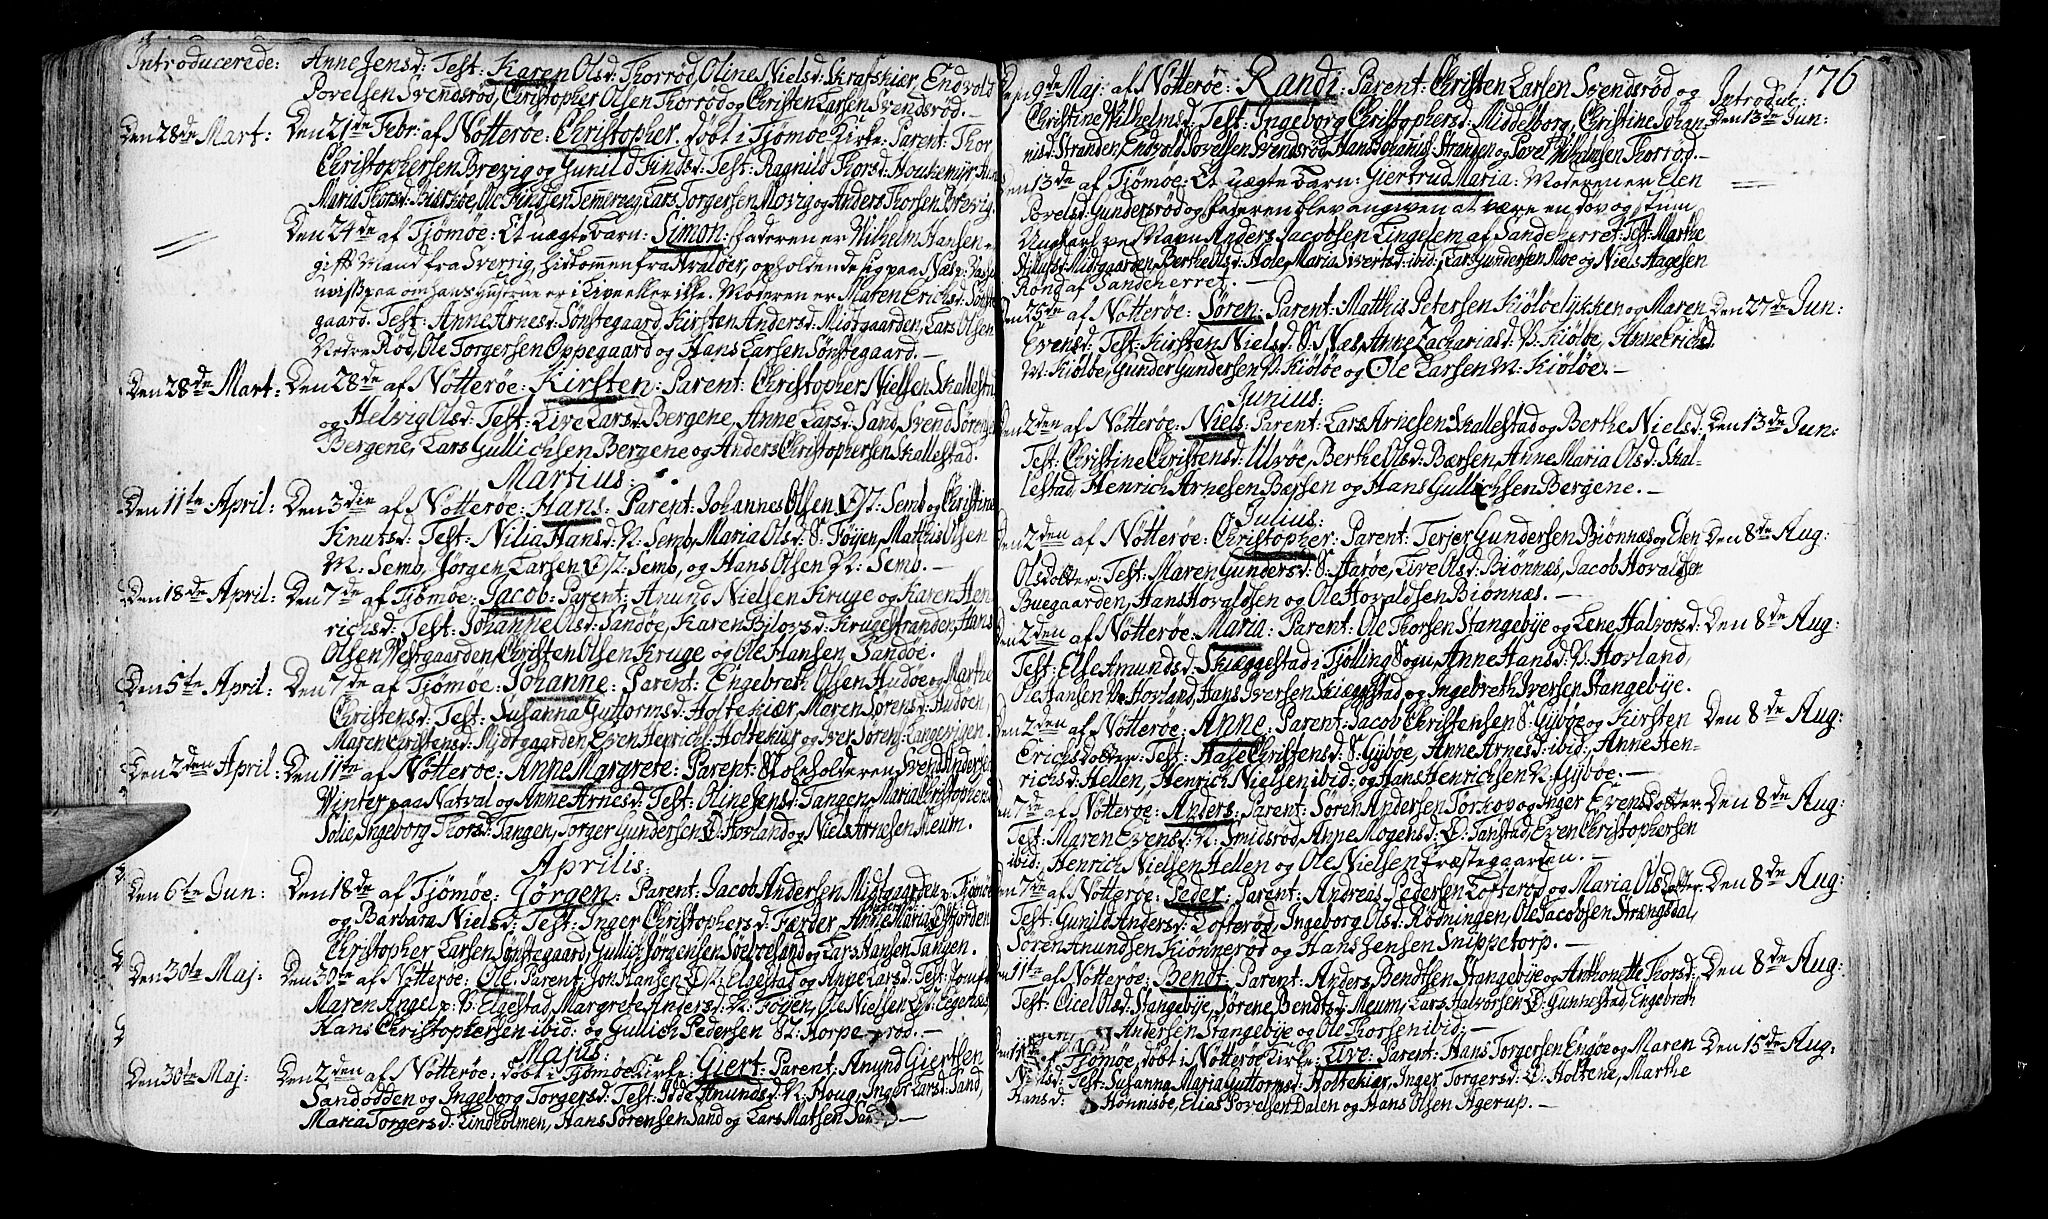 Introducerede: Anne Jensd: Test: Karen Olsd: Thorrød, Oline Nielsd: Skrafskiær, Endvold
Povelsen Svendsrød, Christopher Olsen Thorrød og Christen Larsen Svendsrød.
Den 28de Mart: Den 21de Febr: af Nøtterøe: Christopher, døbt i Tjømøe Kirke: Parent: Thor
Christophersen Brevig og Gunild Findsd: Test: Ragnild Thorsd: Houkemyr
Maria Thorsd: Ole Findsen Lars Torgersen Movig og Anders Thorsen Brevig.
Den 24de af Tjømøe: Et uægte Barn: Simon: Faderen er Wilhelm Hansen
gift Mand fra Sverrig, hidkommen fra Hvaløer, opholdende sig paa Næs:
paa om hans Hustrue er i Live eller ikke. Moderen er Maren Erichsd: Sønste
gaard. Test: Anne Arnesd: Sønstegaard, Kirsten Andersd: Midtgaarden, Lars Olsen
Nedre Rød, Ole Torgersen Oppegaard og Hans Larsen Sønstegaard.
Den 28de Mart: Den 28de af Nøtterøe: Kirsten: Parent: Christopher Nielsen Skallestad
og Helvig Olsd: Test: Live Larsd: Bergene, Anne Larsd: Sand, Svend Sørensen
Bergene, Lars Gullichsen Bergene og Anders Christophersen Skallestad.
Martius:
Den 11te April: Den 3den af Nøtterøe: Hans: Parent: Johannes Olsen Semb og Christine
Knutsd: Test: Nilia Hansd: N: Semb, Maria Olsd: S: Føyen, Mathis Olsen
M: Semb, Jørgen Larsen Semb, og Hans Olsen N: Semb.
Den 18de April: Den 7de af Tjømøe: Jacob: Parent: Anund Nielsen Kruge og Karen Hen
richsd: Test: Johanne Olsd: Sandøe, Karen Krugestranden, Hans
Olsen Westgaarden, Christen Olsen Kruge og Ole Hansen Sandøe.
Den 5te April: Den 7de af Tjømøe: Johanne: Parent: Engebreth Olsen Hudøe og Marthe
Christensd: Test: Susanna Guttormsd: Holtekiær, Maren Sørensd: Hudøen,
Maren Christensd: Midtgaarden, Even Henrichs: Holtekiær og Iver Sørens:
Den 2den April: Den 11te af Nøtterøe: Anne Margrete: Parent: Skoleholderen Svend Andersen
Winter paa Natval og Anne Arnesd: Test: Oline Jensd: Tangen, Maria Christophersd:
Jolie, Ingeborg Thorsd: Tangen, Torger Gundersen Hovland og Niels Arnesen Meum.
Aprilis:
Den 6te Jun: Den 18de af Tjømøe: Jørgen: Parent: Jacob Andersen Midtgaarden p: Tjømøe
og Barbara Nielsd: Test: Inger Christophersd: Færder, Anne Maria Fjorden
Christopher Larsen Sønstegaard, Gullich Jørgensen og Lars Hansen Tangen.
Den 30te Maj: Den 30te af Nøtterøe: Ole: Parent: Jon Hansen Elgestad og Anne Larsd: Test:
Maren Angel p: V: Elgestad, Margrete Andersd: N: Føyen, Ole Nielsen
Hans Christophersen ibid: og Gullich Pedersen
Majus:
Den 30te Maj: Den 2den af Nøtterøe: døbt i Tjømøe Kirke: Giert: Parent: Anund Giertsen
Sandodden og Ingeborg Torgersd: Test: Idde Anundsd: N: Houg, Inger Larsd: Sand,
Maria Torgersd: Lindholmen, Hans Sørensen Sand og Lars Matsen
176
Den 9de Maj: af Nøtterøe: Randi: Parent: Christen Larsen Svendsrød og Introduc:
Christine Wilhelmsd: Test: Ingeborg Christophersd: Middelborg, Christine Johan- Den 13de Jun:
nisd: Stranden, Endvold Povelsen Svendsrød, Hans Johanis: Stranden og Povel Wilhelmsen Thorrød.
Den 13de af Tjømøe: Et uægte Barn: Giertrud Maria: Moderen er Elen
Povelsd: Gundersrød og Faderen blev angiven at være en døv og stum
Ungkarl ved Navn Anders Jacobsen Lingelem af Sandeherret: Test: Marthe
Midtgaarden, Berthe Olsd: Hole, Maria Sivertsd: ibid:, Lars Gundersen Moe og Niels Hagesen
Rønd af Sandeherret.
Den 25de af Nøtterøe: Søren: Parent: Matthis Petersen Kiøløelykken og Maren Den 27de Jun:
Evensd: Test: Kirsten Nielsd: S: Næs, Anne Zachariasd: V: Kiøløe, Anne Erichsd:
M: Kiøløe, Gunder Gundersen N: Kiøløe og Ole Larsen M: Kiøløe.
Junius:
Den 2den af Nøtterøe: Niels: Parent: Lars Arnesen Skallestad og Berthe Nielsd: Den 13de Jun:
Test: Christine Christensd: Ulvøe, Berthe Olsd: Bærsen, Anne Maria Olsd: Skal-
lestad, Henrich Arnesen Bærsen og Hans Gullichsen Bergene.
Julius:
Den 2den af Nøtterøe: Christopher: Parent: Terjer Gundersen Biønnæs og Elen Den 8de Aug:
Olsdotter: Test: Maren Gundersd: S: Aarøe, Live Olsd: Biønnæs, Jacob Hovaldsen
Buegaarden, Hans Hovaldsen og Ole Hovaldsen Biønnæs.
Den 2den af Nøtterøe: Maria: Parent: Ole Thorsen Stangebye og Lene Halvorsd: Den 8de Aug:
Test: Else Amundsd: Skiæggestad i Tjølling Sogn, Anne Hansd: V: Hovland,
Ole Hansen V: Hovland, Hans Iversen Skiæggestad og Ingebreth Iversen Stangebye.
Den 2den af Nøtterøe: Anne: Parent: Jacob Christensen S: Gybøe og Kirsten Den 8de Aug:
Erichsdotter: Test: Hage Christensd: S: Gybøe, Anne Arnesd: ibid:, Anne Hen-
richsd: Hellen, Henrich Nielsen ibid: og Hans Henrichsen N: Gybøe.
Den 7de af Nøtterøe: Anders: Parent: Søren Andersen Torkop og Inger Evensdotter: Den 8de Aug:
Test: Maren Evensd: N: Smidsrød, Anne Mogensd: Ø: Janstad, Even Christophersen
ibid: Henrich Nielsen Hellen og Ole Nielsen Præstegaarden.
Den 7de af Nøtterøe: Peder: Parent: Andreas Pedersen Lofterød og Maria Olsdotter: Den 8de Aug:
Test: Gunild Andersd: Lofterød, Ingeborg Olsd: Rødningen, Ole Jacobsen Strængsdal,
Søren Anundsen Kiønnerød og Hans Jensen Snippetorp.
Den 11te af Nøtterøe: Bendt: Parent: Anders Bendtsen Stangebye og Anthonette Thorsd: Den 8de Aug:
Test: Cicel Olsd: Stangebye, Sørene Bendtsd: Meum, Lars Halvorsen Ø: Gunnestad, Engebreth
Andersen Stangebye og Ole Thorsen ibid:
Den 11te af Tjømøe, døbt i Nøtterøe Kirke: Live: Parent: Hans Torgersen Engøe og Maren Den 15de Aug:
Nielsd: Test: Susanna Maria Guttormsd: Holtekiær, Inger Torgersd: Ø: Holtene, Marthe
Hansd: Hønnisøe, Elias Povelsen Dalen og Hans Olsen Agerup.